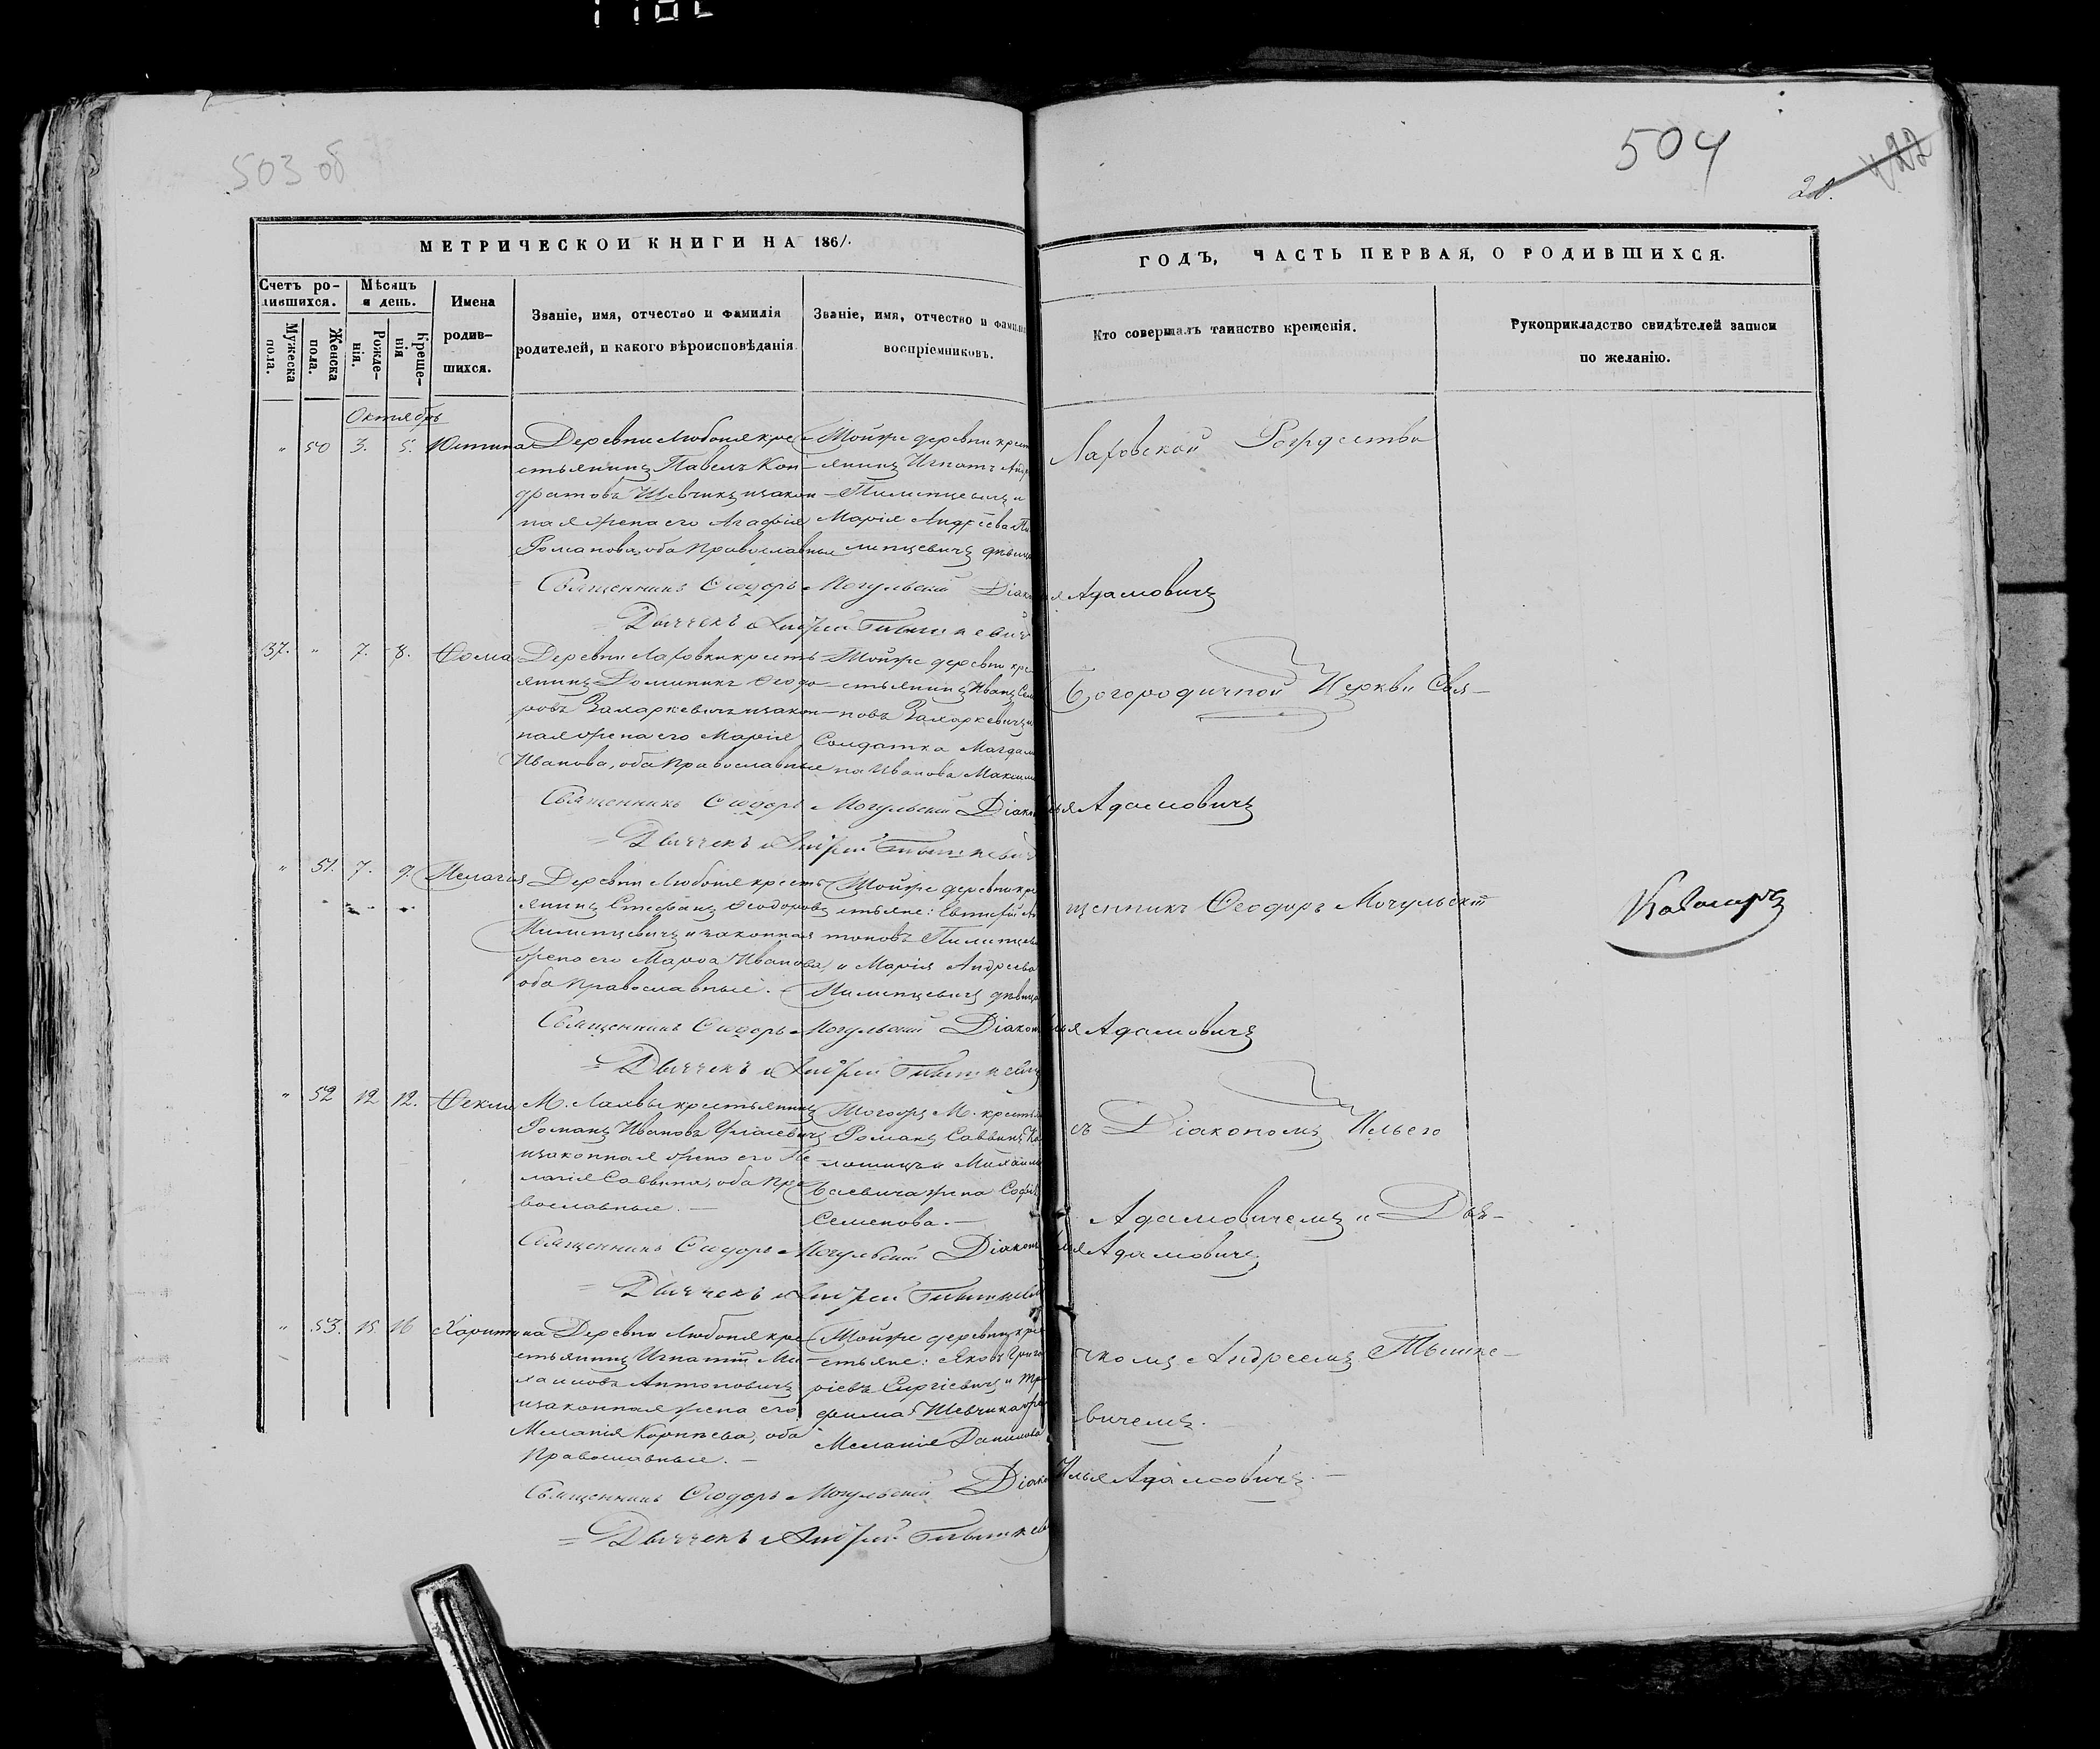 503 об
504
МЕТРИЧЕСКОЙ КНИГИ НА 1861.
ГОДЪ, ЧАСТЬ ПЕРВАЯ, О РОДИВШИХСЯ.
Счетъ ро-
дившихся.
Мѣсяцъ
и день.
Мужеска
пола.
Женска
пола.
Рожде-
нія.
Креще-
нія
Имена
родив-
шихся.
Званіе, имя, отчество и фамилія
родителей, и какого вѣроисповѣданія.
Званіе, имя, отчество и фамилія
воспріемниковъ.
Кто совершалъ таинство крещенія.
Рукоприкладство свидѣтелей записи
по желанію.
Октябрь
" 50 3. 5. Юстина
Деревни Любоня кре-
стьянинъ Павелъ Кон-
дратовъ Шевчикъ и закон-
ная жена его Агафія
Романова, оба православные
Тойже деревни крест
янинъ Игнатъ
Пилипцевичъ и
Марія Андреева Пи
липцевичъ дѣвица
Священникъ Ѳеодоръ Мочульскій Діаконъ Илья Адамовичъ
Дьячекъ Андрей Тышкевичъ
37. " 7. 8. Ѳома
Деревни Лаховки кресть
янинъ Доминикъ Ѳеодо-
ровъ Замаркевичъ и закон-
ная жена его Марія
Иванова, оба православные
Тойже деревни кре
стьянинъ Иванъ Сем
новъ Замаркевичъ и
Солдатка Магдал
на Иванова Максим
Священникъ Ѳеодоръ Мочульскій Діаконъ Илья Адамовичъ
Дьячекъ Андрей Тышкевичъ
" 51. 7. 9. Пелагія
Деревни Любоня кресть
янинъ Стефанъ Ѳеодоровъ
Пилипцевичъ и законная
жена его Марѳа Иванова,
оба православные.
Тойже деревни кре
стьяне: Евтихій Ан
тоновъ Пилипцев
и Марія Андреева
Пилипцевичъ дѣвица
Священникъ Ѳеодоръ Мочульскій Діаконъ Илья Адамовичъ
Дьячекъ Андрей Тышкевичъ
" 52 12 12. Ѳекла
М. Лахвы крестьянинъ
Романъ Ивановъ
и законная жена его Пе
лагія Саввина, оба пра
вославные.
Тогожъ М. крестья
Романъ Саввинъ
Михаила
жена Софія
Семенова.
Священникъ Ѳеодоръ Мочульскій Діаконъ Илья Адамовичъ
Дьячекъ Андрей Тышкевичъ
" 53. 15 16 Харитина
Деревни Любоня кре
стьянинъ Игнатій Ми
хаиловъ Антоновичъ
и законная жена его
Меланія Корнѣева, оба
православные.
Тойже деревни кре
стьяне: Яковъ Григо
ріевъ Сергіевичъ и Тро
фима Шевчика же
Меланія Данилова
Священникъ Ѳеодоръ Мочульскій Діаконъ Илья Адамовичъ.
Дьячекъ Андрей Тышкев
Лаховской Рождество
Богородичной Церкви Свя-
щенникъ Ѳеодоръ Мочульскій
съ Діакономъ Ильею
Адамовичемъ и Дья-
чкомъ Андреемъ Тышке-
вичемъ.